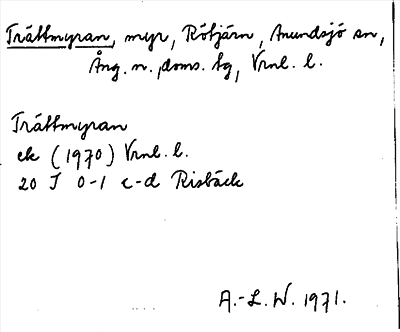 Trättmyran, myr, Rötjärn, Anundsjö sn,
Ång. n. doms. tg, Vrnl. l.
Trättmyran
ek (1970) Vrnl. l.
20 J 0-1 c-d Risbäck
A.-L. W. 1971.